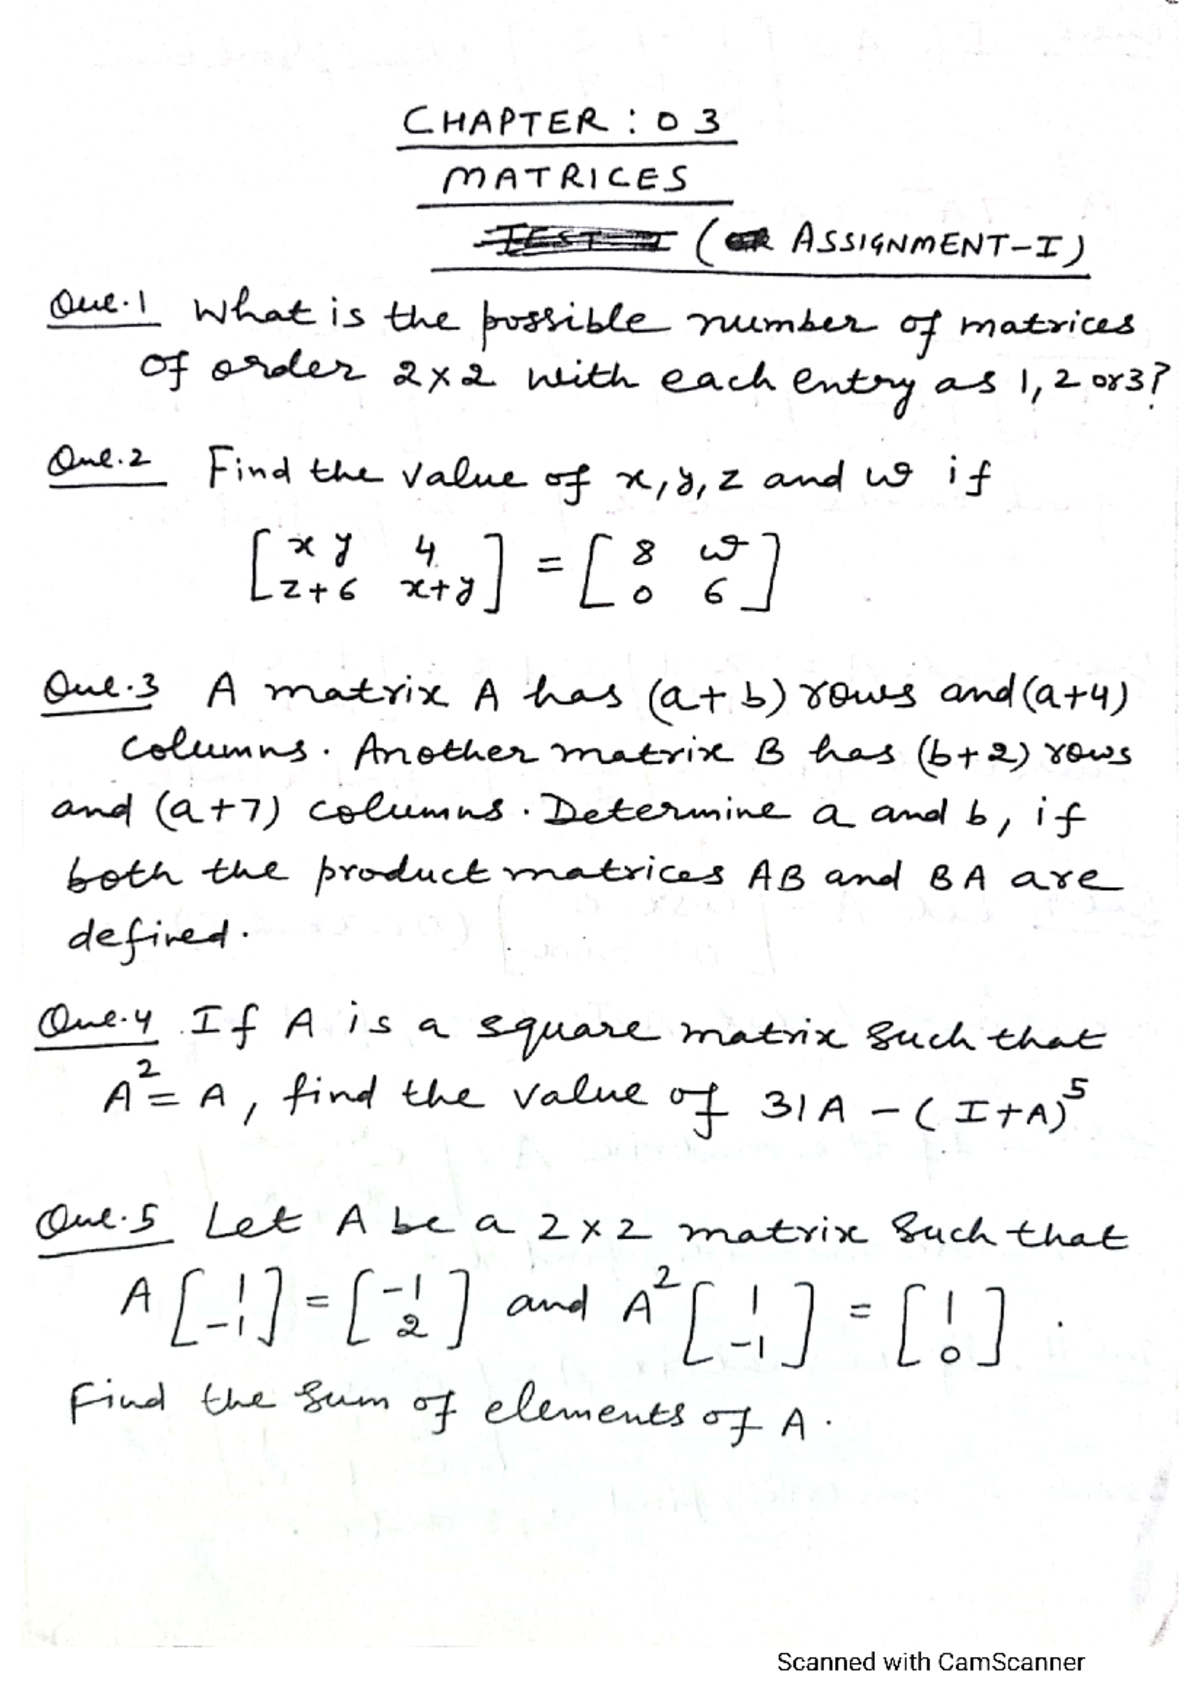 CHAPTER : 03
MATRICES
TEST-I (OR ASSIGNMENT-I)
Que.1 What is the possible number of matrices
of order 2×2 with each entry as 1, 2 or 3?
Que.2 Find the value of x, y, z and w if
[ xy 4 ] = [ 8 w ]
[ z+6 x+y ] [ 0 6 ]
Que.3 A matrix A has (a+b) rows and (a+4)
columns. Another matrix B has (b+2) rows
and (a+7) columns. Determine a and b, if
both the product matrices AB and BA are
defined.
Que.4 If A is a square matrix such that
A² = A, find the value of 31A - (I+A)⁵
Que.5 Let A be a 2×2 matrix such that
A [ 1 ] = [ -1 ] and A² [ 1 ] = [ 1 ] .
[ -1 ] [ 2 ] [ -1 ] [ 0 ]
Find the sum of elements of A.
Scanned with CamScanner